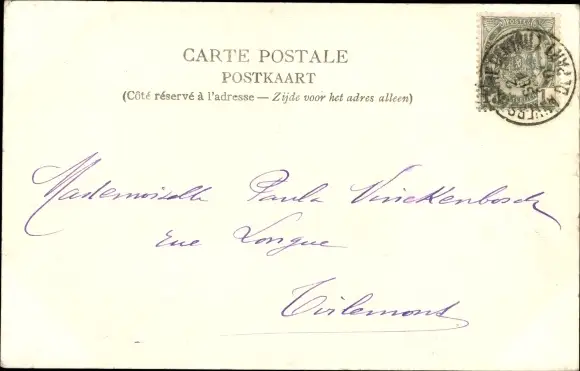 CARTE POSTALE
POSTKAART
(Côté réservé à l'adresse — Zijde voor het adres alleen)
Mademoiselle Paula Vinckenbosch
rue Longue
Tirlemont